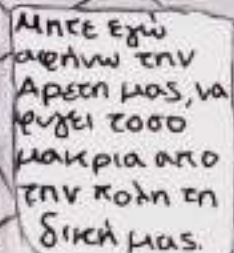 Μητε εγώ
αφήνω την
Αρετη μας, να
φυγει τοσο
μακρια απο
την πολη τη
δική μας.